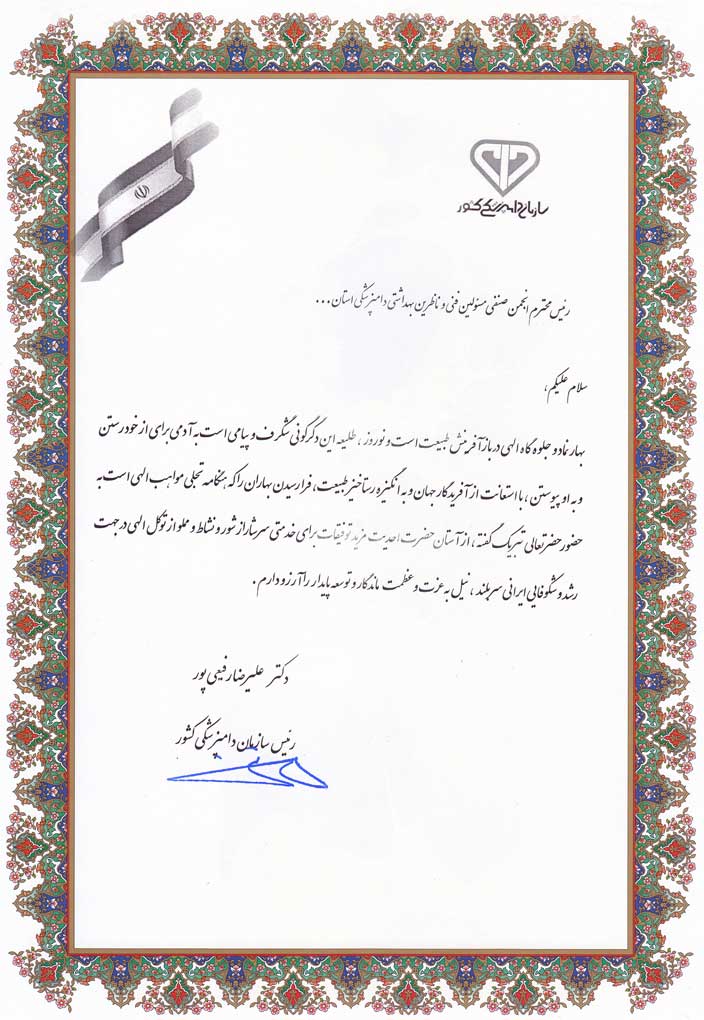 سازمان دامپزشکی کشور
رئیس محترم انجمن صنفی مسئولین فنی و ناظرین بهداشتی دامپزشکی استان ...
سلام علیکم،
بهار نماد و جلوه گاه الهی در باز آفرینش طبیعت است و نوروز، طلیعه این دگرگونی شگرف و پیامی است به آدمی برای از خود رستن
و به او پیوستن، با استعانت از آفریدگار جهان و به انگیزه رستاخیز طبیعت، فرا رسیدن بهاران را که هنگامه تجلی مواهب الهی است به
حضور حضرتعالی تبریک گفته، از آستان حضرت احدیت مزید توفیقات برای خدمتی سرشار از شور و نشاط و مملو از توکل الهی در جهت
رشد و شکوفایی ایرانی سربلند، نیل به عزت و عظمت ماندگار و توسعه پایدار را آرزو دارم.
دکتر علیرضا رفیعی پور
رئیس سازمان دامپزشکی کشور